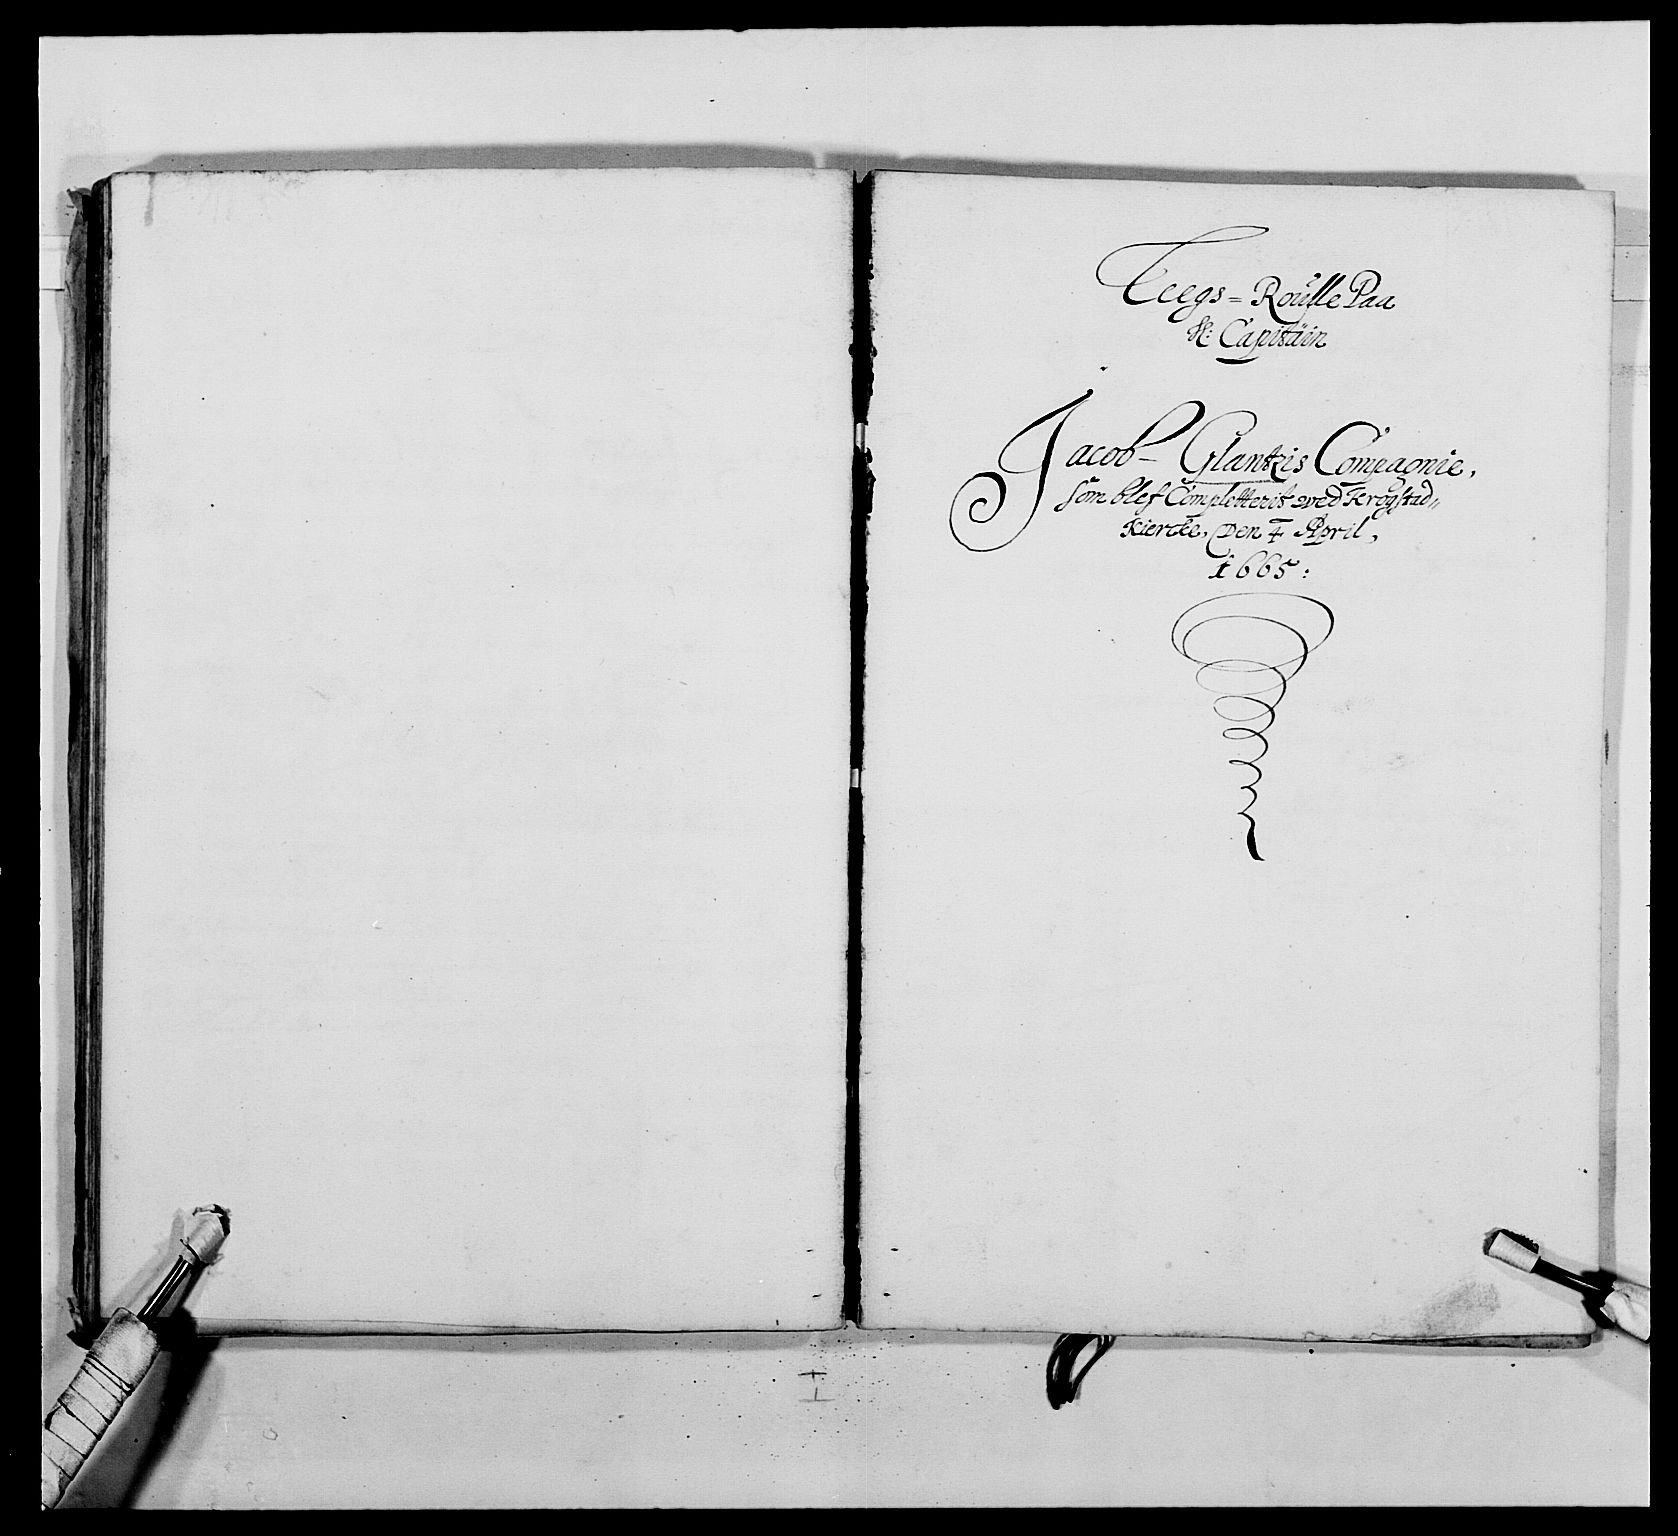 Leegs=Roulle Paa
H: Capitäin
Jacob Glantzis Compagnie,
som blef Completterit wed Krogstad„
Kiercke, Den 4 April,
1665: